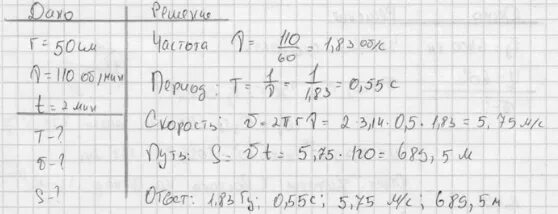 Дано
r = 50 см
ν = 110 об/мин
t = 2 мин
T - ?
υ - ?
S - ?
Решение
Частота ν = 110/60 = 1,83 об/с
Период: T = 1/ν = 1/1,83 = 0,55 с
Скорость: υ = 2πrν = 2·3,14·0,5·1,83 = 5,75 м/с
Путь: S = υt = 5,75·120 = 689,5 м
Ответ: 1,83 Гц; 0,55с; 5,75 м/с; 689,5 м